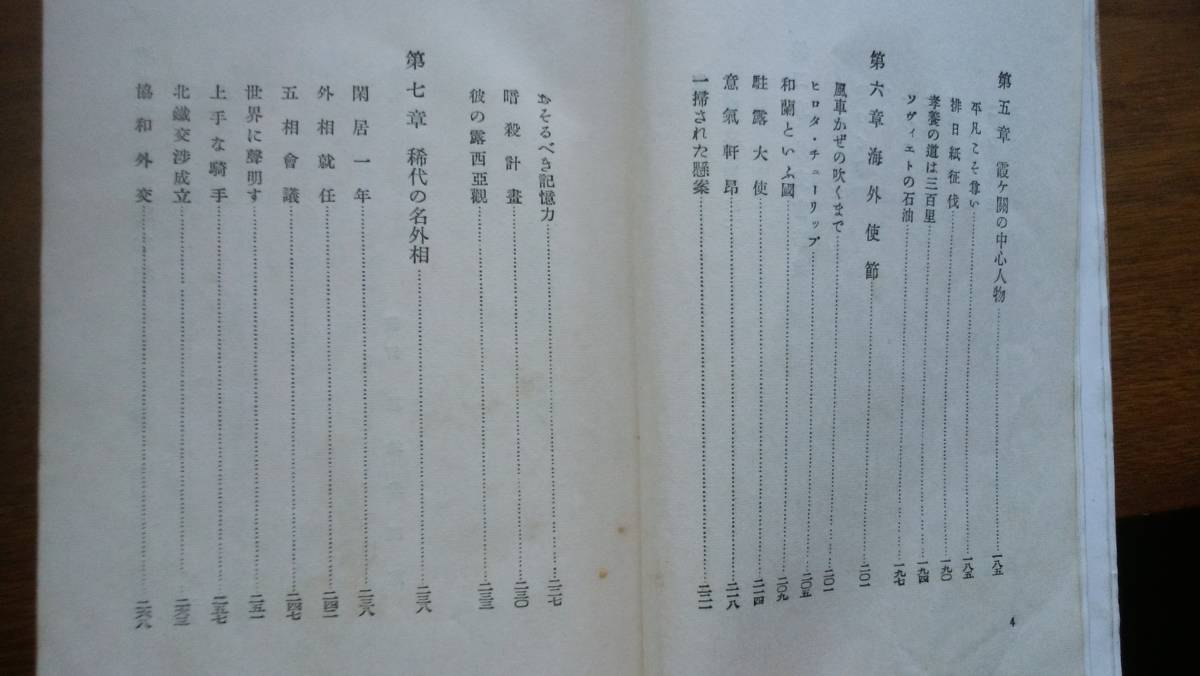 第五章 霞ケ關の中心人物……一八五
平凡こそ尊い……一八五
排日紙征伐……一九〇
孝養の道は三百里……一九四
ソヴィエトの石油……一九七
第六章 海外使節……二〇一
風車かぜの吹くまで……二〇一
ヒロタ・チューリップ……二〇五
和蘭といふ國……二〇九
駐露大使……二一四
意氣軒昂……二一八
一掃された懸案……二二一
4
おそるべき記憶力……二二七
暗殺計畫……二三〇
彼の露西亞觀……二三三
第七章 稀代の名外相……二三八
閑居一年……二三八
外相就任……二四二
五相會議……二四七
世界に聲明す……二五一
上手な騎手……二五七
北鐵交涉成立……二六三
協和外交……二六八